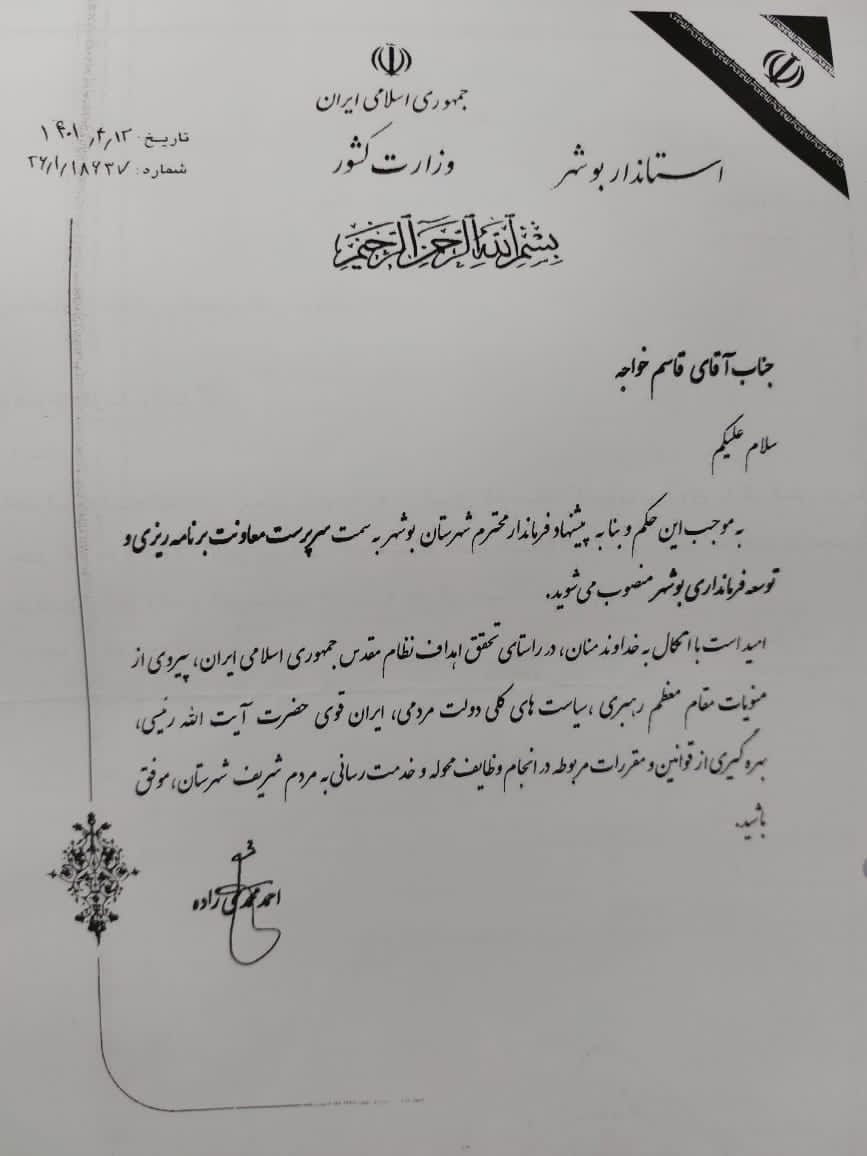 جمهوری اسلامی ایران
وزارت کشور
استاندار بوشهر
تاریخ: ۱۴۰۱٫۴٫۱۲
شماره: ۲۶/۱/۱۸۶۳۷
بسم الله الرحمن الرحیم
جناب آقای قاسم خواجه
سلام علیکم
به موجب این حکم و بنا به پیشنهاد فرماندار محترم شهرستان بوشهر به سمت سرپرست معاونت برنامه ریزی و
توسعه فرمانداری بوشهر منصوب می شوید.
امید است با اتکال به خداوند منان، در راستای تحقق اهداف نظام مقدس جمهوری اسلامی ایران، پیروی از
منویات مقام معظم رهبری ،سیاست های کلی دولت مردمی، ایران قوی حضرت آیت الله رئیسی،
بهره گیری از قوانین و مقررات مربوطه در انجام وظایف محوله و خدمت رسانی به مردم شریف شهرستان، موفق
باشید.
احمد محمدی زاده